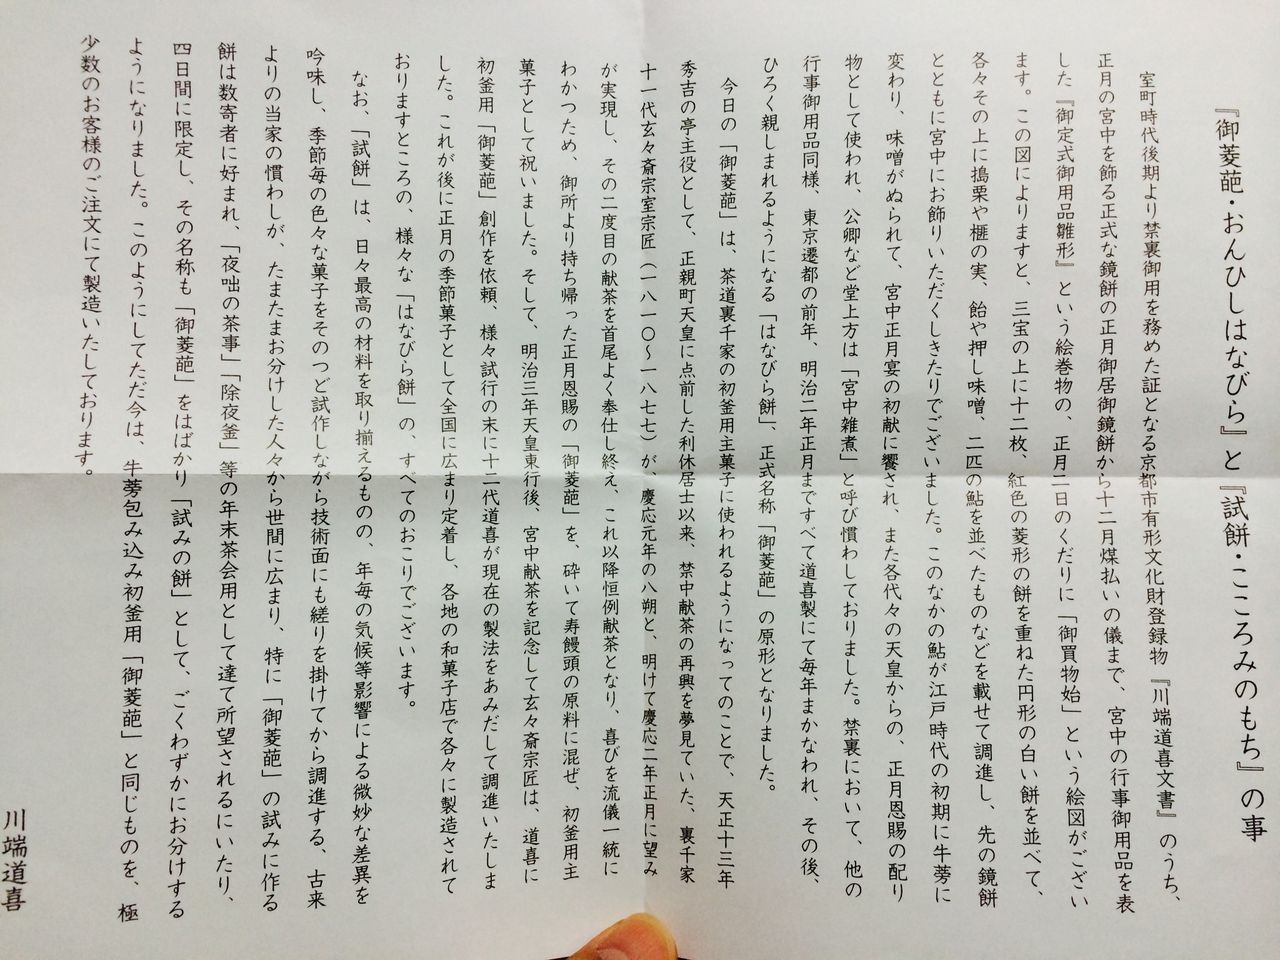 『御菱葩・おんひしはなびら』と『試餅・こころみのもち』の事
室町時代後期より禁裏御用を務めた証となる京都市有形文化財登録物『川端道喜文書』のうち、
正月の宮中を飾る正式な鏡餅の正月御居御鏡餅から十二月煤払いの儀まで、宮中の行事御用品を表
した『御定式御用品雛形』という絵巻物の、正月二日のくだりに「御買物始」という絵図がござい
ます。この図によりますと、三宝の上に十二枚、紅色の菱形の餅を重ねた円形の白い餅を並べて、
各々その上に搗栗や榧の実、飴や押し味噌、二匹の鮎を並べたものなどを載せて調進し、先の鏡餅
とともに宮中にお飾りいただくしきたりでございました。このなかの鮎が江戸時代の初期に牛蒡に
変わり、味噌がぬられて、宮中正月宴の初献に饗され、また各代々の天皇からの、正月恩賜の配り
物として使われ、公卿など堂上方は「宮中雑煮」と呼び慣わしておりました。禁裏において、他の
行事御用品同様、東京遷都の前年、明治二年正月まですべて道喜製にて毎年まかなわれ、その後、
ひろく親しまれるようになる「はなびら餅」、正式名称「御菱葩」の原形となりました。
今日の「御菱葩」は、茶道裏千家の初釜用主菓子に使われるようになってのことで、天正十三年
秀吉の亭主役として、正親町天皇に点前した利休居士以来、禁中献茶の再興を夢見ていた、裏千家
十一代玄々斎宗室宗匠（一八一〇〜一八七七）が、慶応元年の八朔と、明けて慶応二年正月に望み
が実現し、その二度目の献茶を首尾よく奉仕し終え、これ以降恒例献茶となり、喜びを流儀一統に
わかつため、御所より持ち帰った正月恩賜の「御菱葩」を、砕いて寿饅頭の原料に混ぜ、初釜用主
菓子として祝いました。そして、明治三年天皇東行後、宮中献茶を記念して玄々斎宗匠は、道喜に
初釜用「御菱葩」創作を依頼、様々試行の末に十二代道喜が現在の製法をあみだして調進いたしま
した。これが後に正月の季節菓子として全国に広まり定着し、各地の和菓子店で各々に製造されて
おりますところの、様々な「はなびら餅」の、すべてのおこりでございます。
なお、「試餅」は、日々最高の材料を取り揃えるものの、年毎の気候等影響による微妙な差異を
吟味し、季節毎の色々な菓子をそのつど試作しながら技術面にも縒りを掛けてから調進する、古来
よりの当家の慣わしが、たまたまお分けした人々から世間に広まり、特に「御菱葩」の試みに作る
餅は数寄者に好まれ、「夜咄の茶事」「除夜釜」等の年末茶会用として達て所望されるにいたり、
四日間に限定し、その名称も「御菱葩」をはばかり「試みの餅」として、ごくわずかにお分けする
ようになりました。このようにしてただ今は、牛蒡包み込み初釜用「御菱葩」と同じものを、極
少数のお客様のご注文にて製造いたしております。
川端道喜